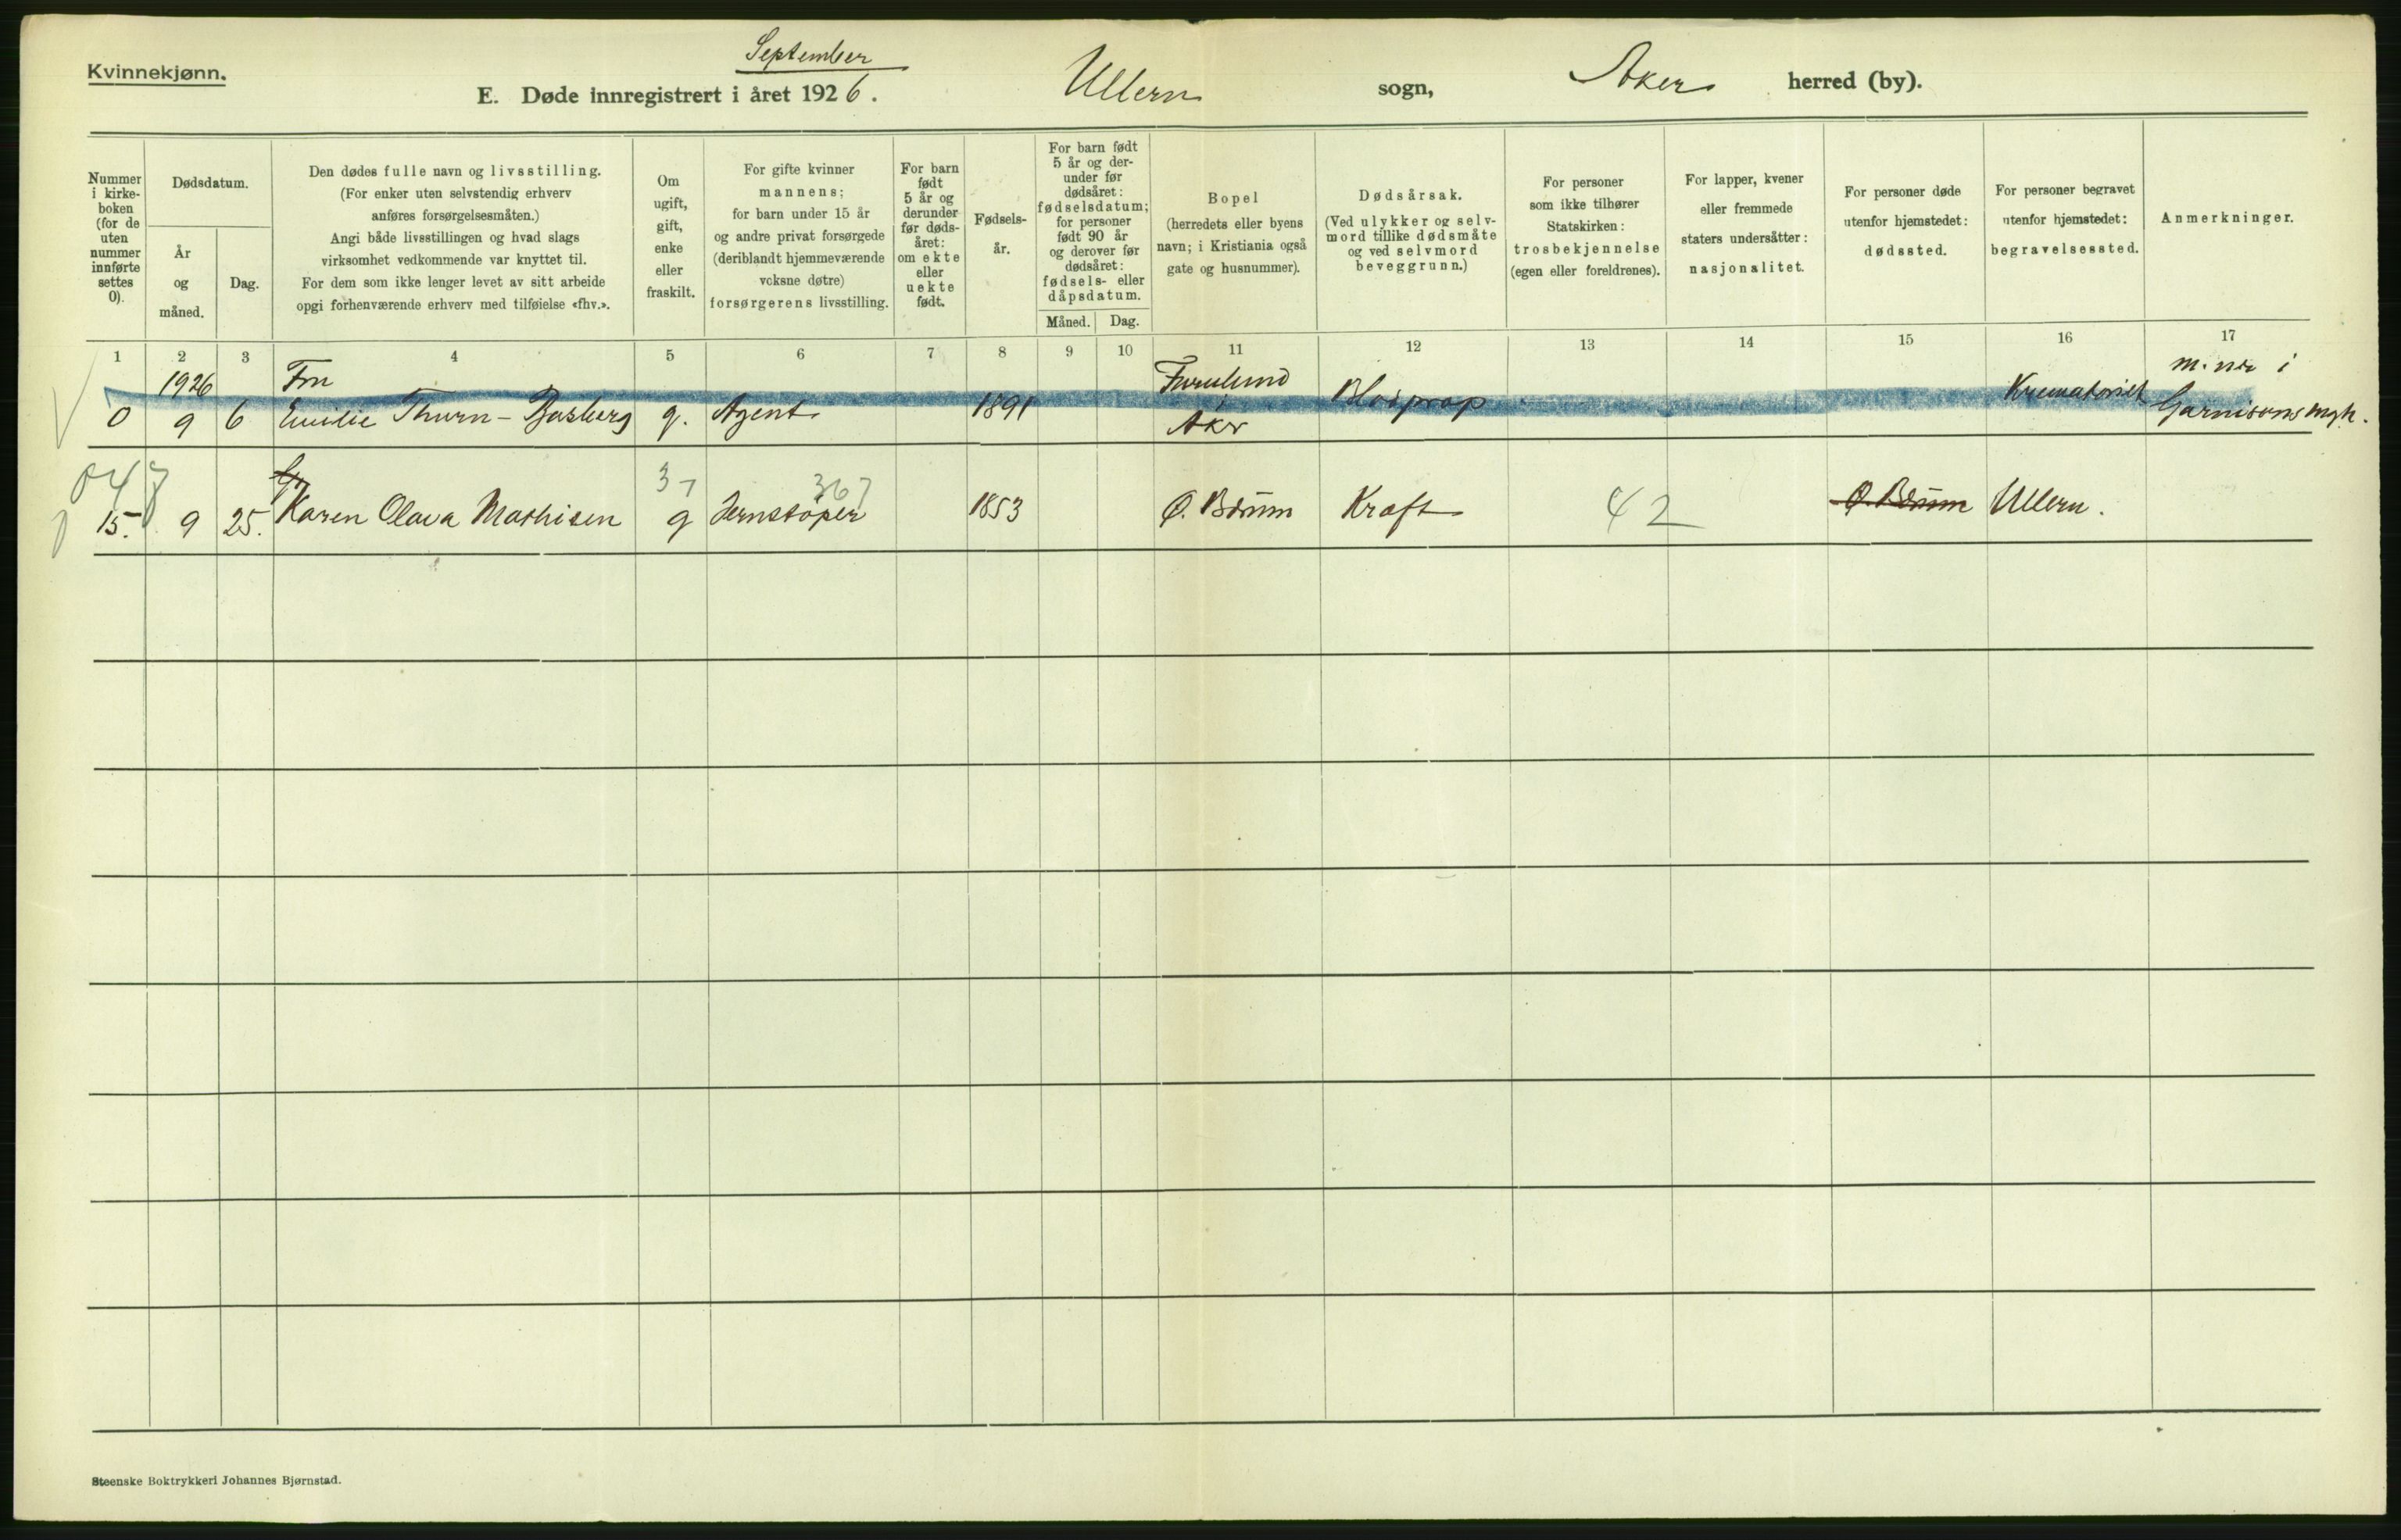 Kvinnekjønn.
September
E. Døde innregistrert i året 1926.
Ullern sogn, Aker herred (by).
Nummer i kirke-boken (for de uten nummer innførte settes 0).
Dødsdatum.
År og måned.
Dag.
Den dødes fulle navn og livsstilling.
(For enker uten selvstendig erhverv
anføres forsørgelsesmåten.)
Angi både livsstillingen og hvad slags
virksomhet vedkommende var knyttet til.
For dem som ikke lenger levet av sitt arbeide
opgi forhenværende erhverv med tilføielse «fhv.».
Om ugift, gift, enke eller fraskilt.
For gifte kvinner
mannens;
for barn under 15 år
og andre privat forsørgede
(deriblandt hjemmeværende
voksne døtre)
forsørgerens livsstilling.
For barn født 5 år og derunder før døds-året: om ekte eller uekte født.
Fødsels-år.
For barn født 5 år og der-under før dødsåret: fødselsdatum; for personer født 90 år og derover før dødsåret: fødsels- eller dåpsdatum.
Måned. Dag.
Bopel
(herredets eller byens
navn; i Kristiania også
gate og husnummer).
Dødsårsak.
(Ved ulykker og selv-
mord tillike dødsmåte
og ved selvmord
beveggrunn.)
For personer
som ikke tilhører
Statskirken:
trosbekjennelse
(egen eller foreldrenes).
For lapper, kvener
eller fremmede
staters undersåtter:
nasjonalitet.
For personer døde
utenfor hjemstedet:
dødssted.
For personer begravet
utenfor hjemstedet:
begravelsessted.
Anmerkninger.
1 2 3 4 5 6 7 8 9 10 11 12 13 14 15 16 17
1926 Fru Furulund m. nr i
0 9 6 Emilie Thurn- g. Agent 1891 Aker Blodprop Krematoriet Garnisonsmgh.
37 367
15. 9 25. Karen Olava Mathisen g Jernstøper 1853 Ø. Bærum Kræft 42 Ø. Bærum Ullern.
Steenske Boktrykkeri Johannes Bjørnstad.